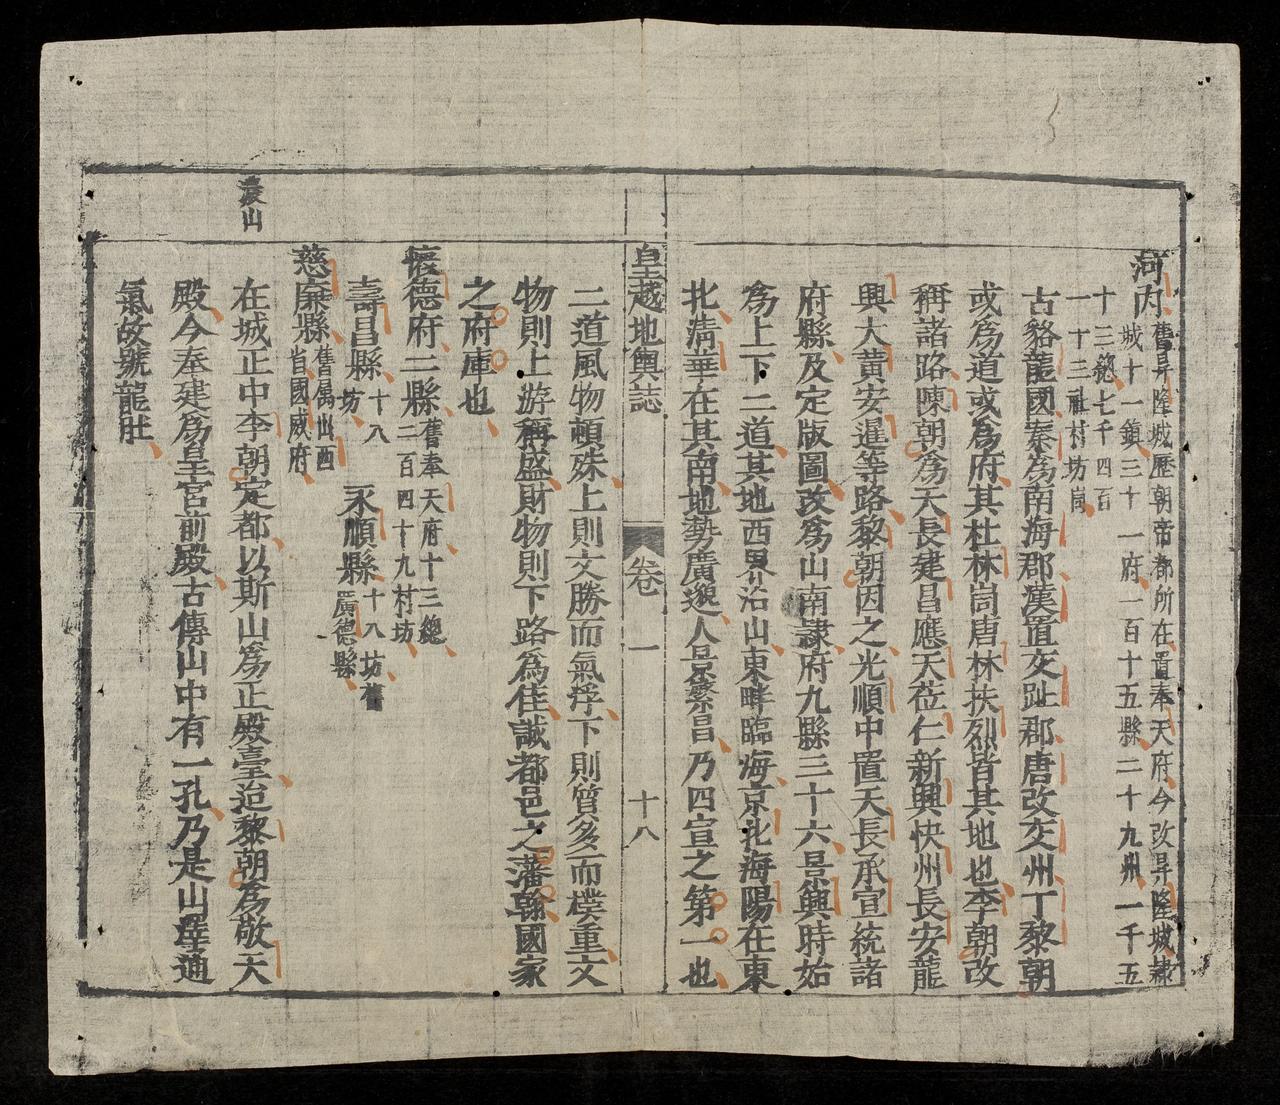 河内
舊昇隆城歷朝帝都所在置奉天府今改昇隆城隷
城十一鎮三十一府一百十五縣二十九州一千五
十三總七千四百
一十三社村坊崗
古貉龍國秦爲南海郡漢置交趾郡唐改交州丁黎朝
或爲道或爲府其杜林崗唐林扶烈皆其地也李朝改
稱諸路陳朝爲天長建昌應天莅仁新興快州長安龍
興大黃安暹等路黎朝因之光順中置天長承宣統諸
府縣及定版圖改爲山南隷府九縣三十六景興時始
爲上下二道其地西界沿山東畔臨海京北海陽在東
北清華在其南地勢廣邈人景繁昌乃四宣之第一也
皇越地輿誌 卷一 十八
二道風物頓殊上則文勝而氣浮下則質多而樸重文
物則上游稱盛財物則下路爲佳誠都邑之藩翰國家
之府庫也
懷德府二縣
舊奉天府十三總
二百四十九村坊
壽昌縣
十八
坊
永順縣
十八坊舊
廣德縣
慈廉縣
舊屬山西
省國威府
濃山
在城正中李朝定都以斯山爲正殿臺迨黎朝爲敬天
殿今奉建爲皇宮前殿古傳山中有一孔乃是山靈通
氣故號龍肚